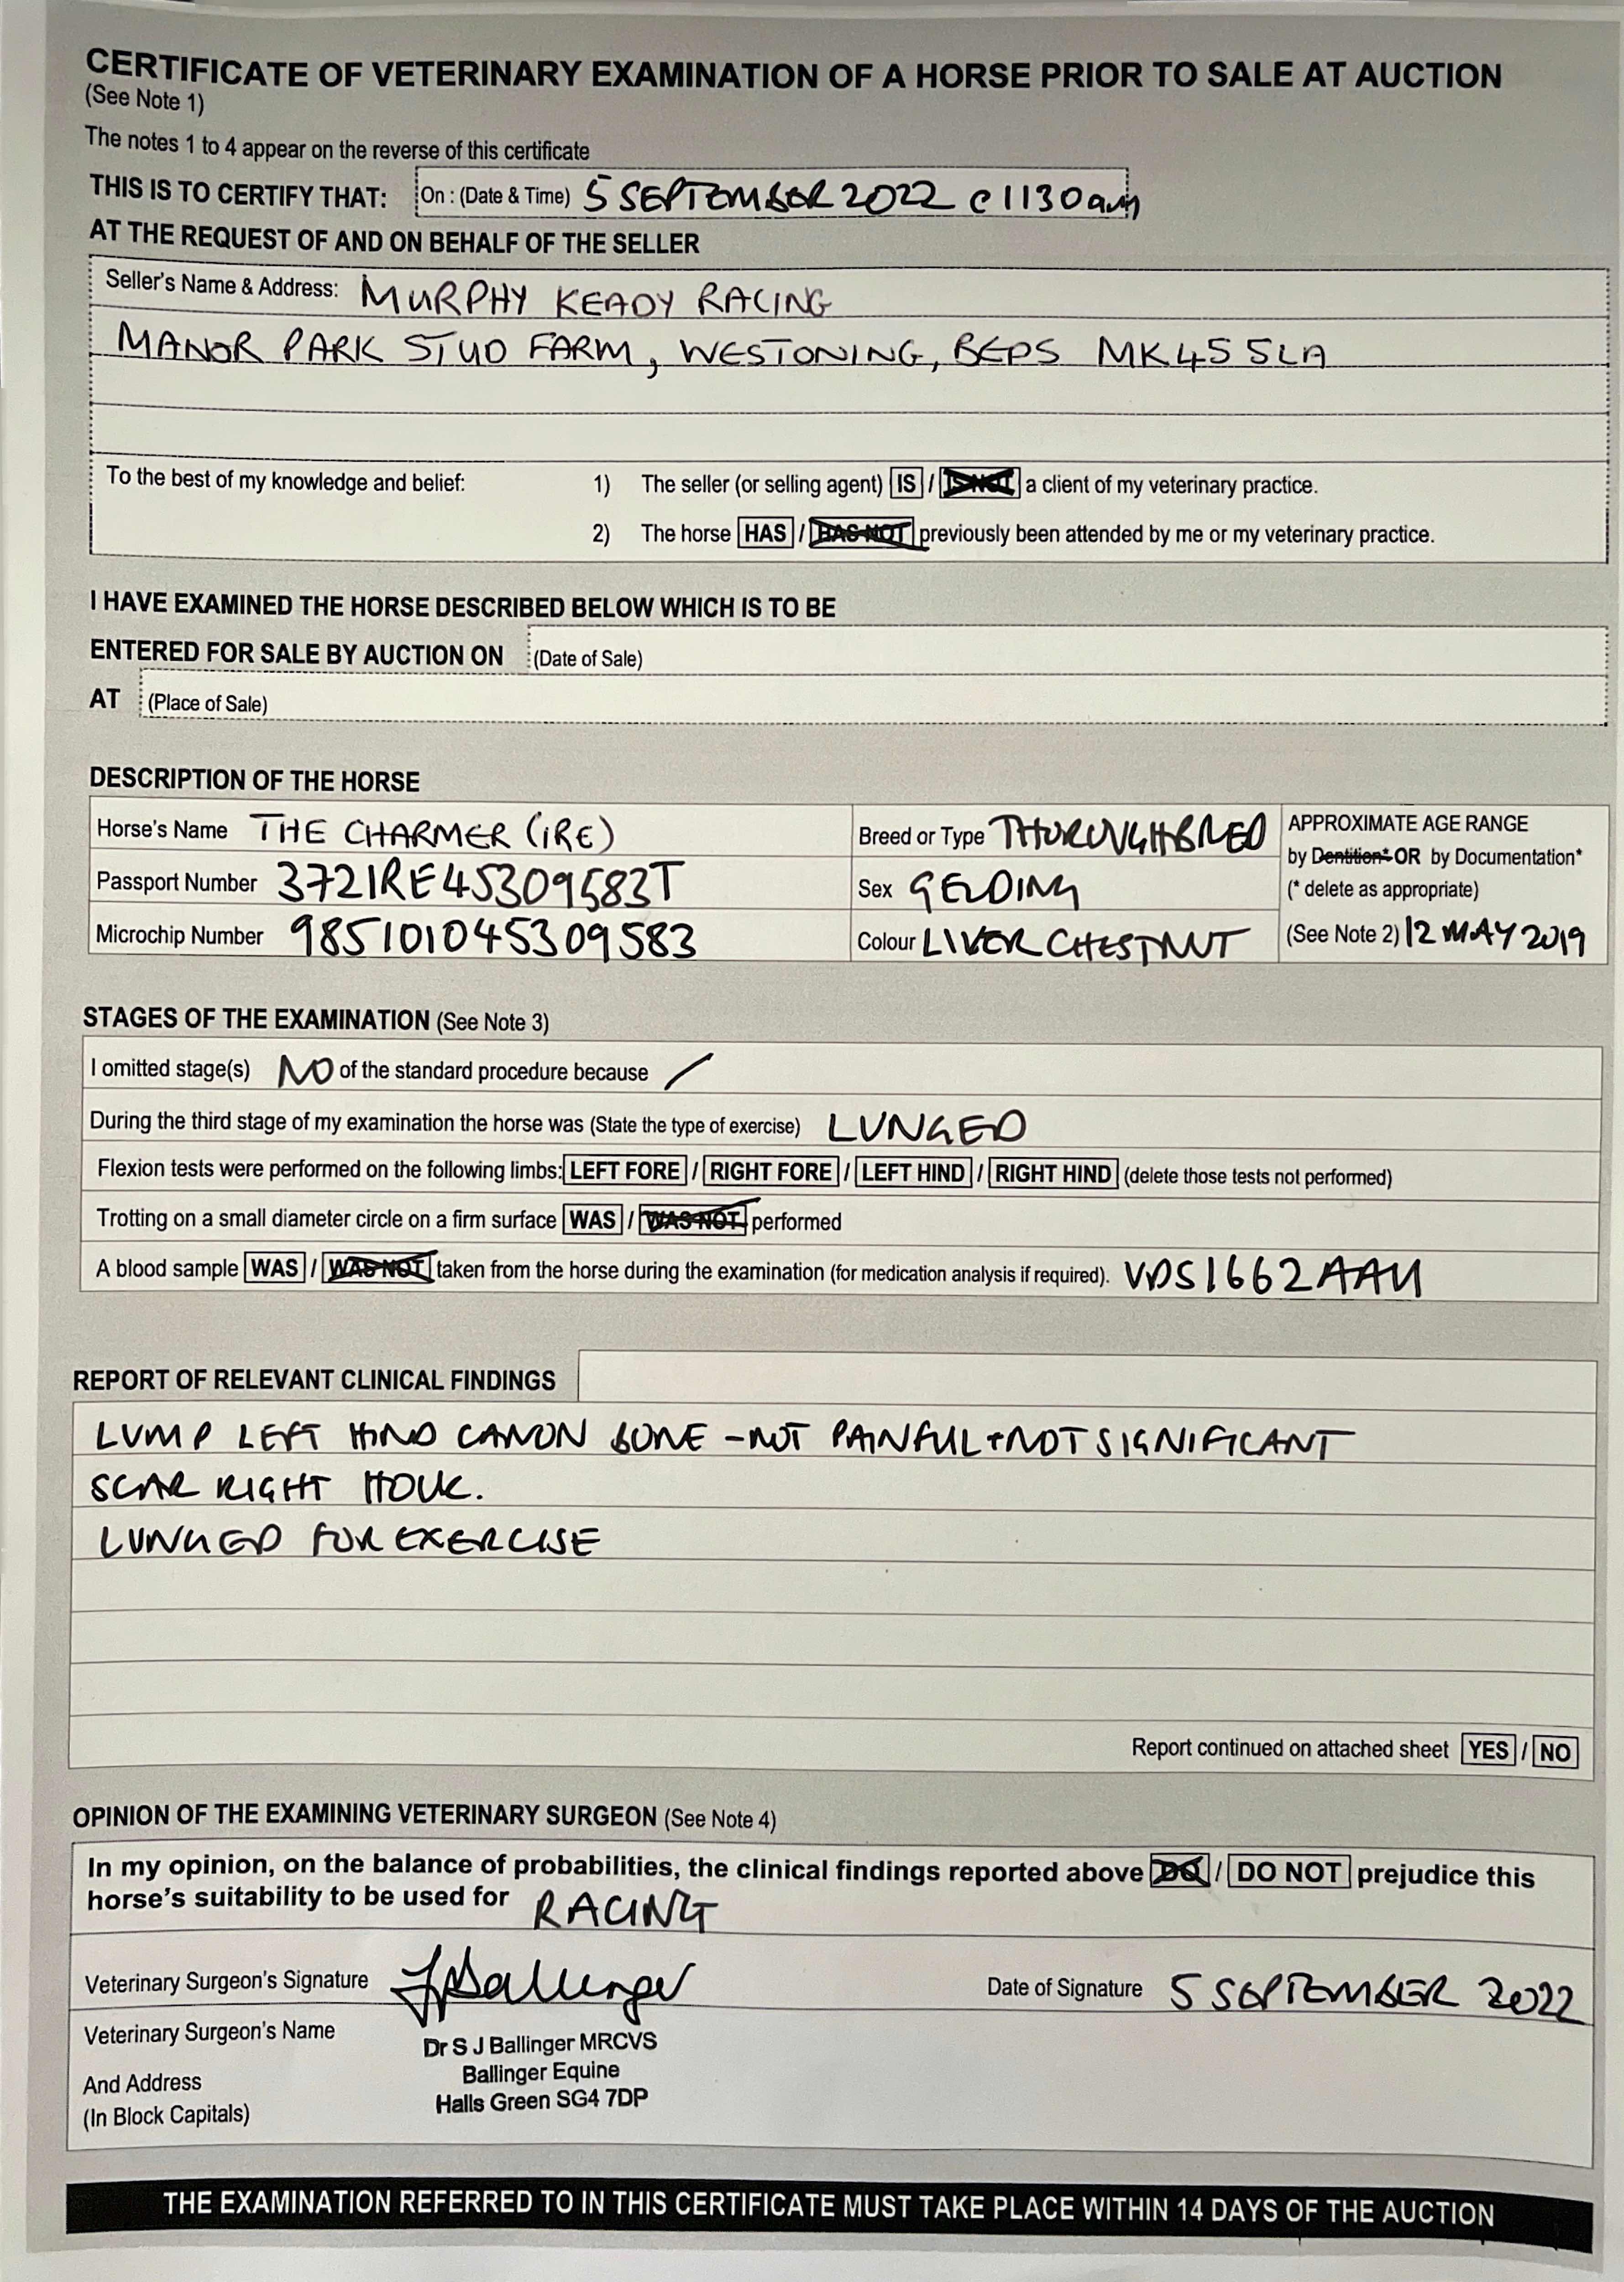 CERTIFICATE OF VETERINARY EXAMINATION OF A HORSE PRIOR TO SALE AT AUCTION
(See Note 1)
The notes 1 to 4 appear on the reverse of this certificate
THIS IS TO CERTIFY THAT: On : (Date & Time) 5 SEPTEMBER 2022 @ 1130am
AT THE REQUEST OF AND ON BEHALF OF THE SELLER
Seller's Name & Address: MURPHY KEADY RACING
MANOR PARK STUD FARM, WESTONING, BEDS MK45 5LA
To the best of my knowledge and belief: 1) The seller (or selling agent) IS / IS NOT a client of my veterinary practice.
2) The horse HAS / HAS NOT previously been attended by me or my veterinary practice.
I HAVE EXAMINED THE HORSE DESCRIBED BELOW WHICH IS TO BE
ENTERED FOR SALE BY AUCTION ON (Date of Sale)
AT (Place of Sale)
DESCRIPTION OF THE HORSE
Horse's Name THE CHARMER (IRE) Breed or Type THOROUGHBRED APPROXIMATE AGE RANGE
by Dentition* OR by Documentation*
Passport Number 372IRE45309583T Sex GELDING (* delete as appropriate)
Microchip Number 985101045309583 Colour LIVER CHESTNUT (See Note 2) 12 MAY 2019
STAGES OF THE EXAMINATION (See Note 3)
I omitted stage(s) NO of the standard procedure because /
During the third stage of my examination the horse was (State the type of exercise) LUNGED
Flexion tests were performed on the following limbs: LEFT FORE / RIGHT FORE / LEFT HIND / RIGHT HIND (delete those tests not performed)
Trotting on a small diameter circle on a firm surface WAS / WAS NOT performed
A blood sample WAS / WAS NOT taken from the horse during the examination (for medication analysis if required). VDS1662AAU
REPORT OF RELEVANT CLINICAL FINDINGS
LUMP LEFT HIND CANON BONE - NOT PAINFUL + NOT SIGNIFICANT
SCAR RIGHT HOCK.
LUNGED FOR EXERCISE
Report continued on attached sheet YES / NO
OPINION OF THE EXAMINING VETERINARY SURGEON (See Note 4)
In my opinion, on the balance of probabilities, the clinical findings reported above DO / DO NOT prejudice this
horse's suitability to be used for RACING
Veterinary Surgeon's Signature SJBallinger Date of Signature 5 SEPTEMBER 2022
Veterinary Surgeon's Name Dr S J Ballinger MRCVS
Ballinger Equine
And Address Halls Green SG4 7DP
(In Block Capitals)
THE EXAMINATION REFERRED TO IN THIS CERTIFICATE MUST TAKE PLACE WITHIN 14 DAYS OF THE AUCTION